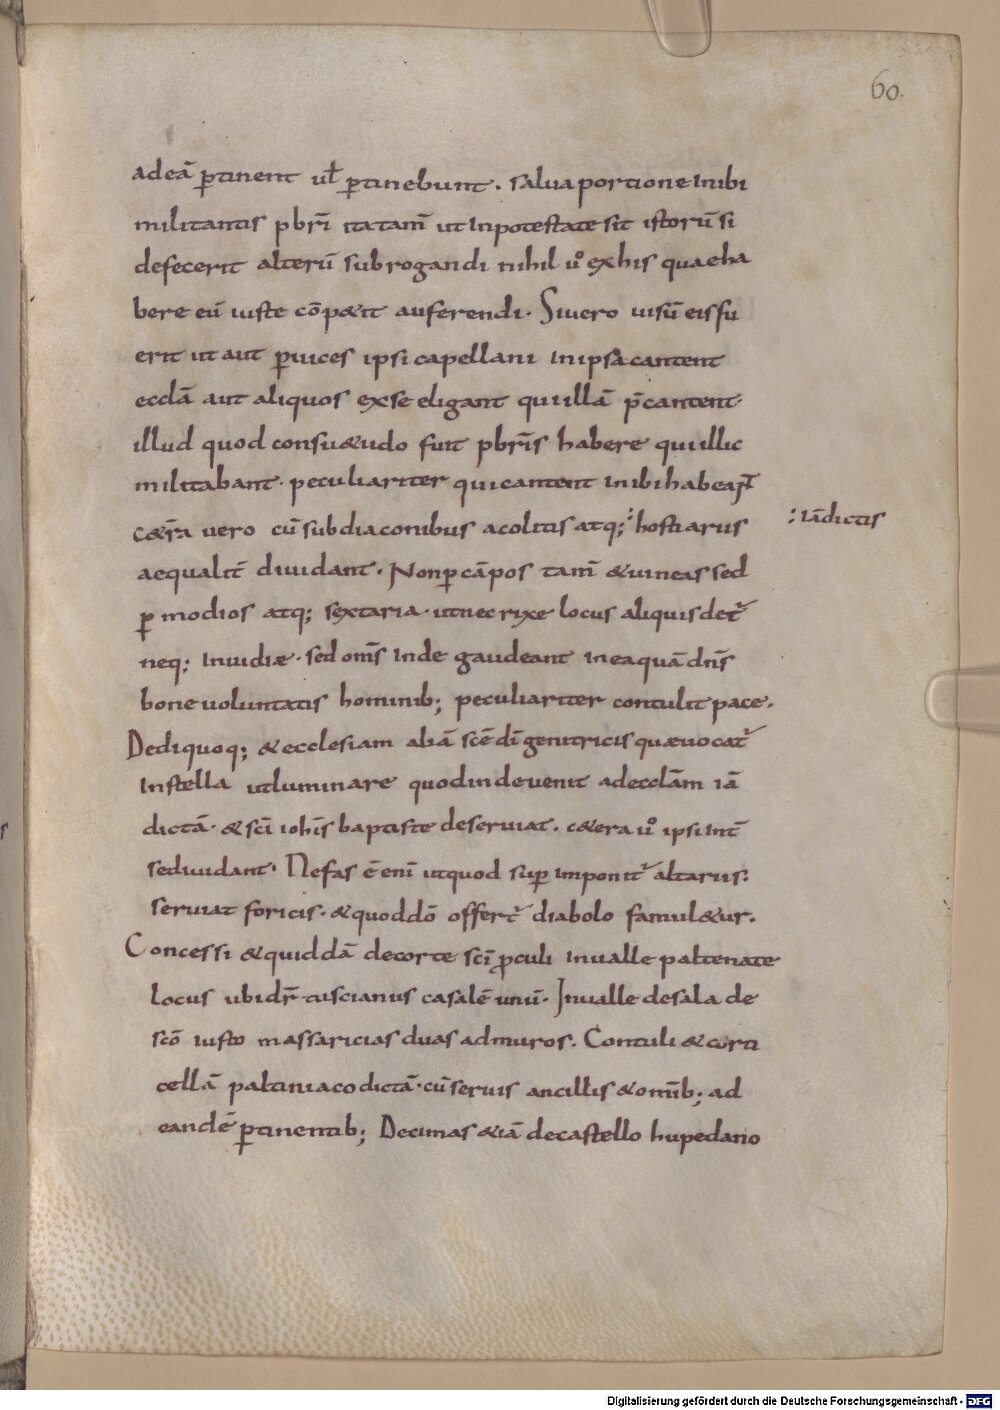 60.
adeā ꝑtinent ul̄ ꝑtinebunt. salua portione inibi
militantis pbr̄i ita tam̄ ut in potestate sit istorū si
defecerit alterū subrogandi nihil u° ex his quae ha
bere eū iuste cōp&it auferendi. Si uero uisū eis fu
erit ut aut ꝑ uices ipsi capellani in ipsa cantent
eccłā aut aliquos ex se eligant qui illā p̄cantent.
illud quod consu&udo fuit pbr̄is habere qui illic
militabant. peculiariter qui cantent inibi habeant
c&̄ra uero cū subdiaconibus acolitis atq; hostiariis
:iādictis
aequalit̄ diuidant. Non ꝑ cāpos tam̄ & uineas sed
ꝑ modios atq; sextaria. ut nec rixe locus aliquis det̄
neq; inuidiæ. sed om̄s inde gaudeant in ea quā dn̄s
bone uoluntatis hominib; peculiariter contulit pace.
Dedi quoq; & ecclesiam aliā scē dī genitricis quæ uocat̄
in stella ut luminare quod inde uenit ad eccłam iā
dictā. & scī ioh̄is baptiste deseruiat. c&era u° ipsi int̄
se diuidant. Nefas ē eni ut quod suꝑ imponit̄ altariis.
seruiat foricis. & quod dō offert̄ diabolo famul&ur.
Concessi & quiddā de corte scī ꝓculi in ualle paltenate
locus ubi dr̄ tuscianus casalē unū. In ualle de sala de
scō iusto massaricias duas ad muros. Contuli & corti
cellā paltiniaco dictā. cū seruis ancillis & om̄ib; ad
eandē ꝑtinentib; Decimas &iā de castello hupedano
Digitalisierung gefördert durch die Deutsche Forschungsgemeinschaft - DFG